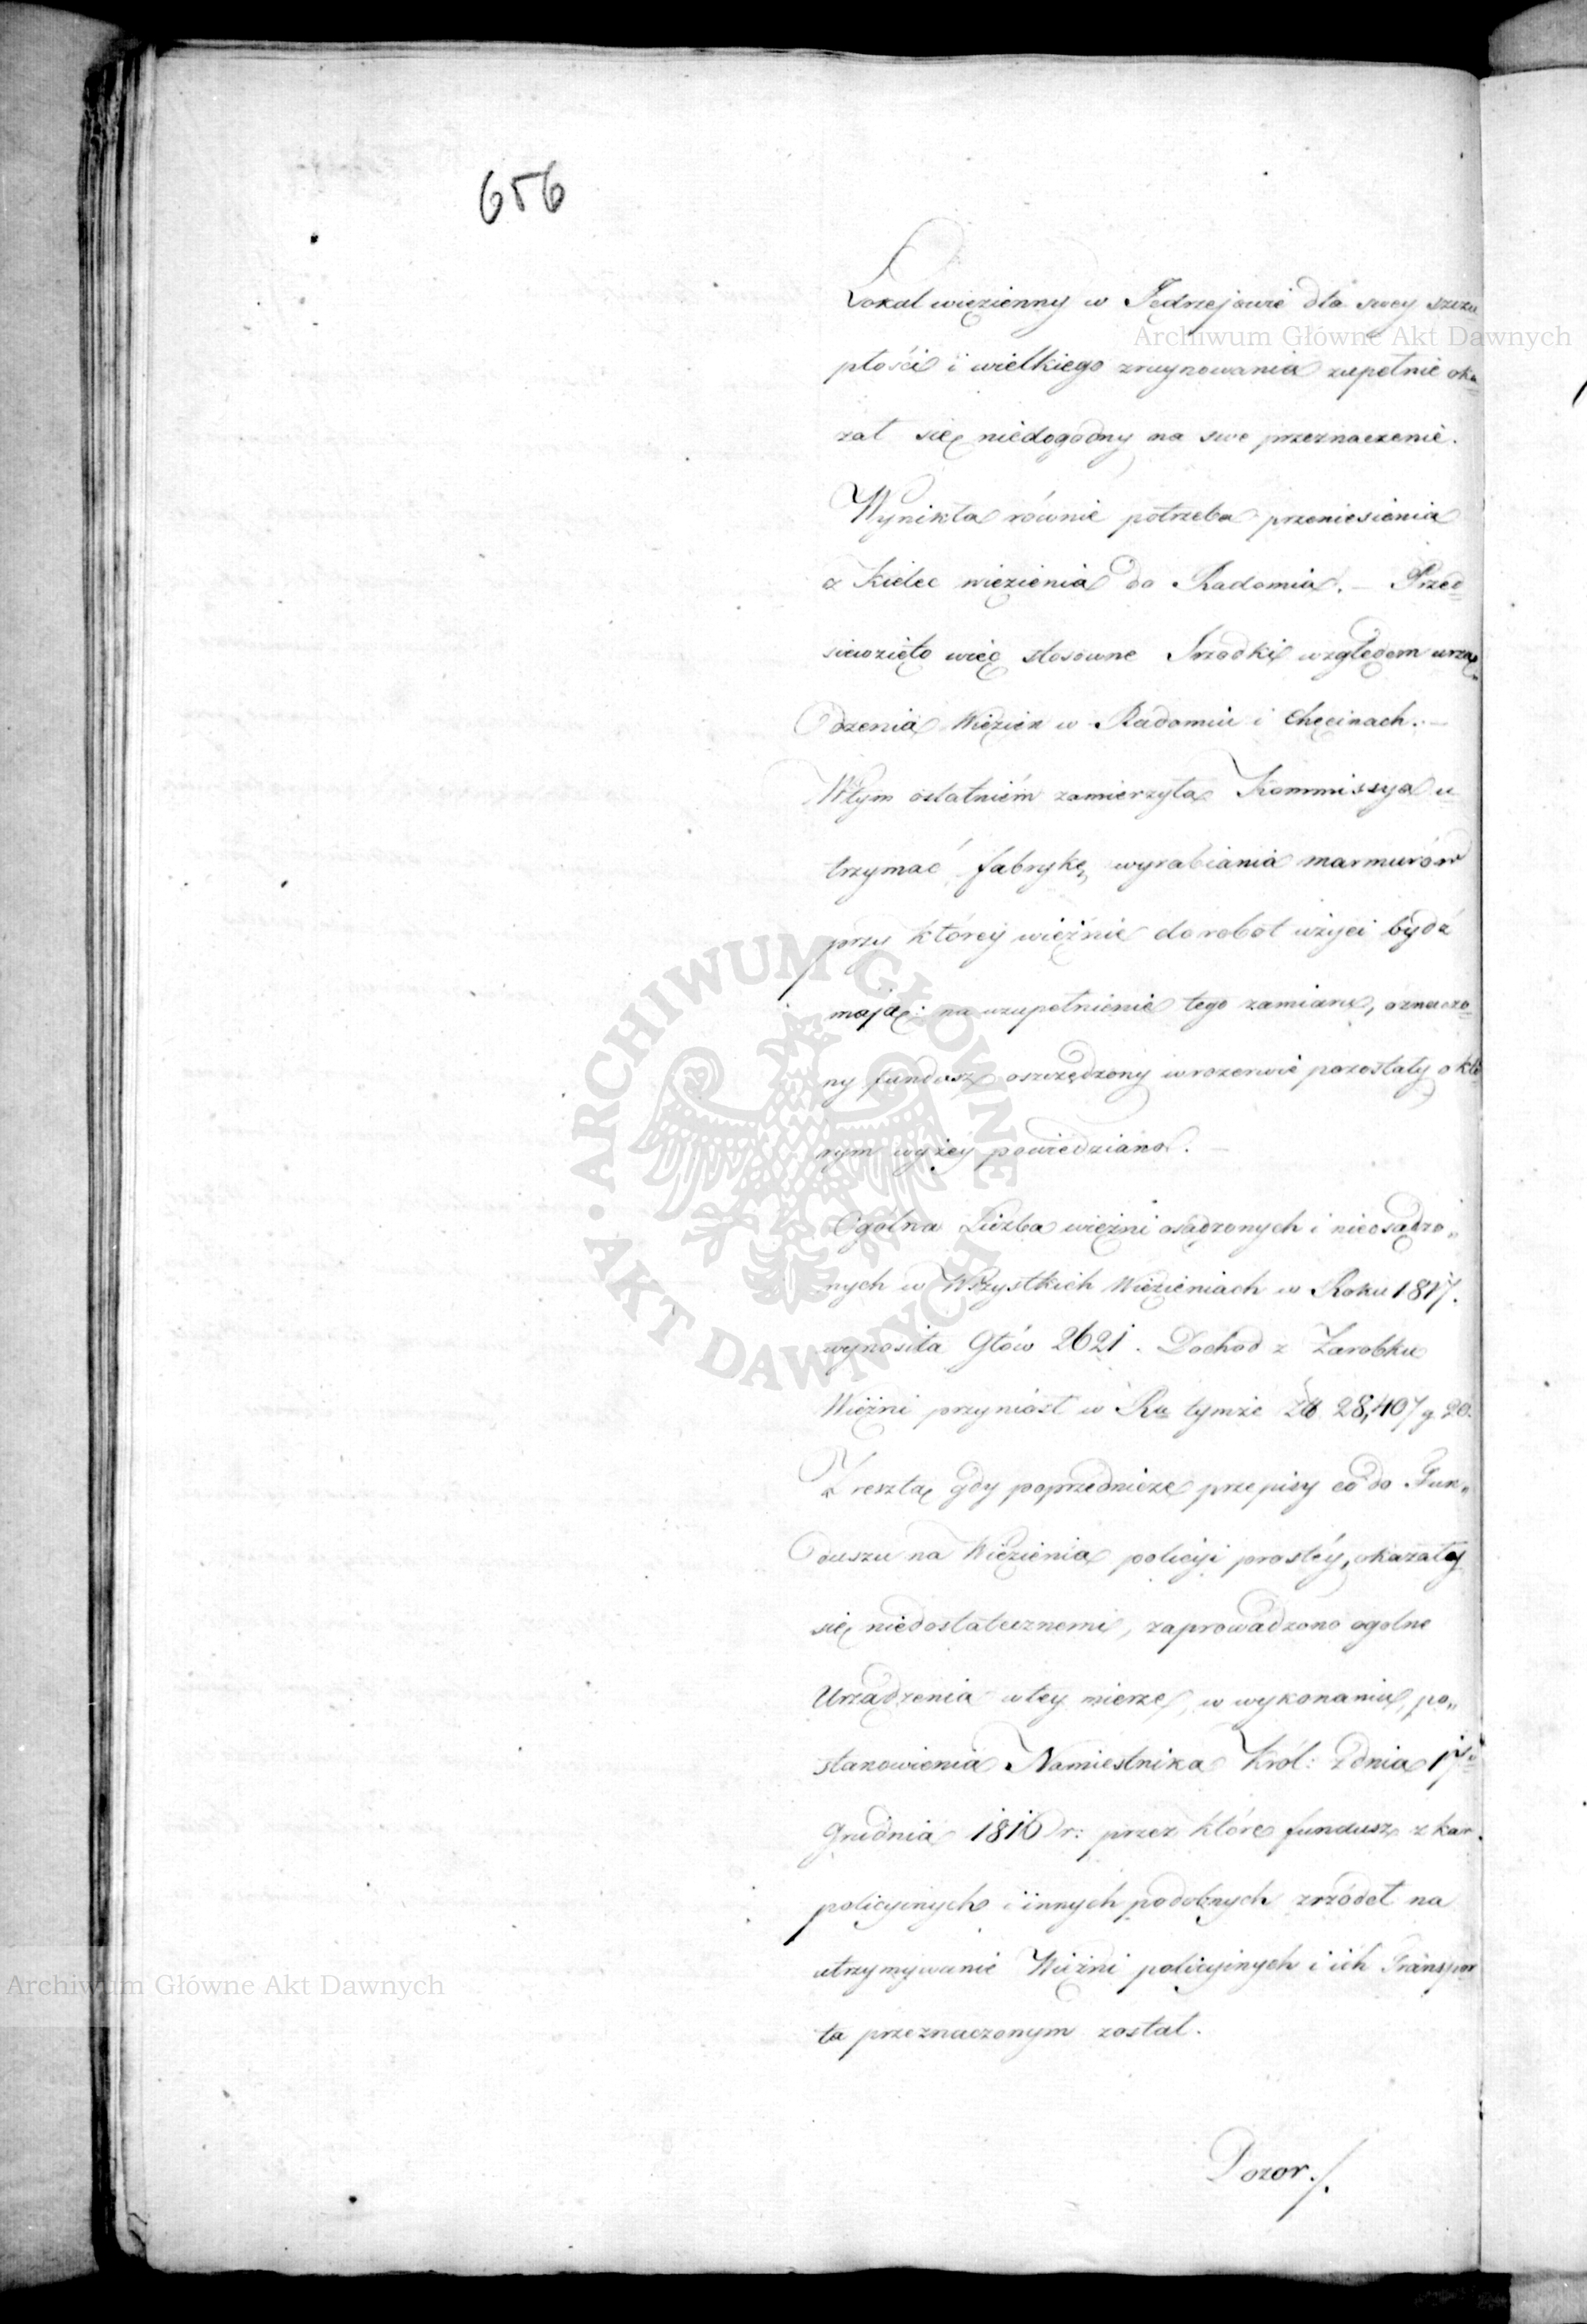 656
Lokal więzienny w Jędrzejowie dla swey szczu
Archiwum Główne Akt Dawnych
płości i wielkiego zruynowania zupełnie oka=
zał się niedogodny na swe przeznaczenie.
Wynikła równie potrzeba przeniesienia
z Kielec więzienia do Radomia. — Przed=
siewzięto więc stosowne Srzodki względem urzą„
dzenia Więzien w Radomiu i Chęcinach. —
W tym ostatniém zamierzyła Kommissya u=
trzymać fabrykę wyrabiania marmurów
przy którey więźnie do robot użyci bydź
mają; na uzupełnienie tego zamiaru, oznaczo=
ny fundusz oszczędzony w rezerwie pozostały o któ
rym wyżey powiedziano. —
Ogolna Liczba więźni osądzonych i nieosądzo„
nych w Wszystkich Więzieniach w Roku 1817.
wynosiła Głów 2621. Dochod z Zarobku
Więźni przyniósł w Ru tymże Zł 28,407 g. 20.
Z resztą gdy poprzednicze przepisy co do Fun„
duszu na Więzienia policyi prostéy, okazały
się niedostatecznemi, zaprowadzono ogolne
Urządzenia w tey mierze, w wykonaniu, po„
stanowienia Namiestnika Król: z dnia 1go
Grudnia 1816 r: przez które fundusz z kar
policyinych i innych podobnych zrzódeł na
utrzymywanie Więźni policyinych i ich Transpor
Archiwum Główne Akt Dawnych
ta przeznaczonym został.
Dozor./.
ARCHIWUM GŁÓWNE AKT DAWNYCH